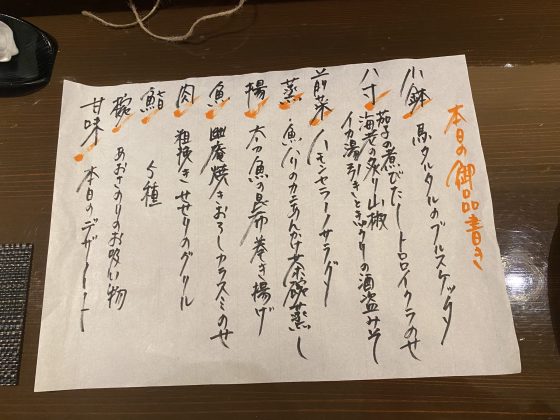 本日の御品書き
小鉢 馬タルタルのブルスケッタ
八寸 茄子の煮びたし トロイクラのせ
海老の炙り山椒
イカ湯引きときゅうりの酒盗みそ
前菜 ハモンセラーノサラダ
蒸 魚介のカニあんかけ茶碗蒸し
揚 太刀魚の昆布巻き揚げ
魚 幽庵焼きおろしカラスミのせ
肉 粗挽きせせりのグリル
鮨 5種
椀 あおさのりのお吸い物
甘味 本日のデザート